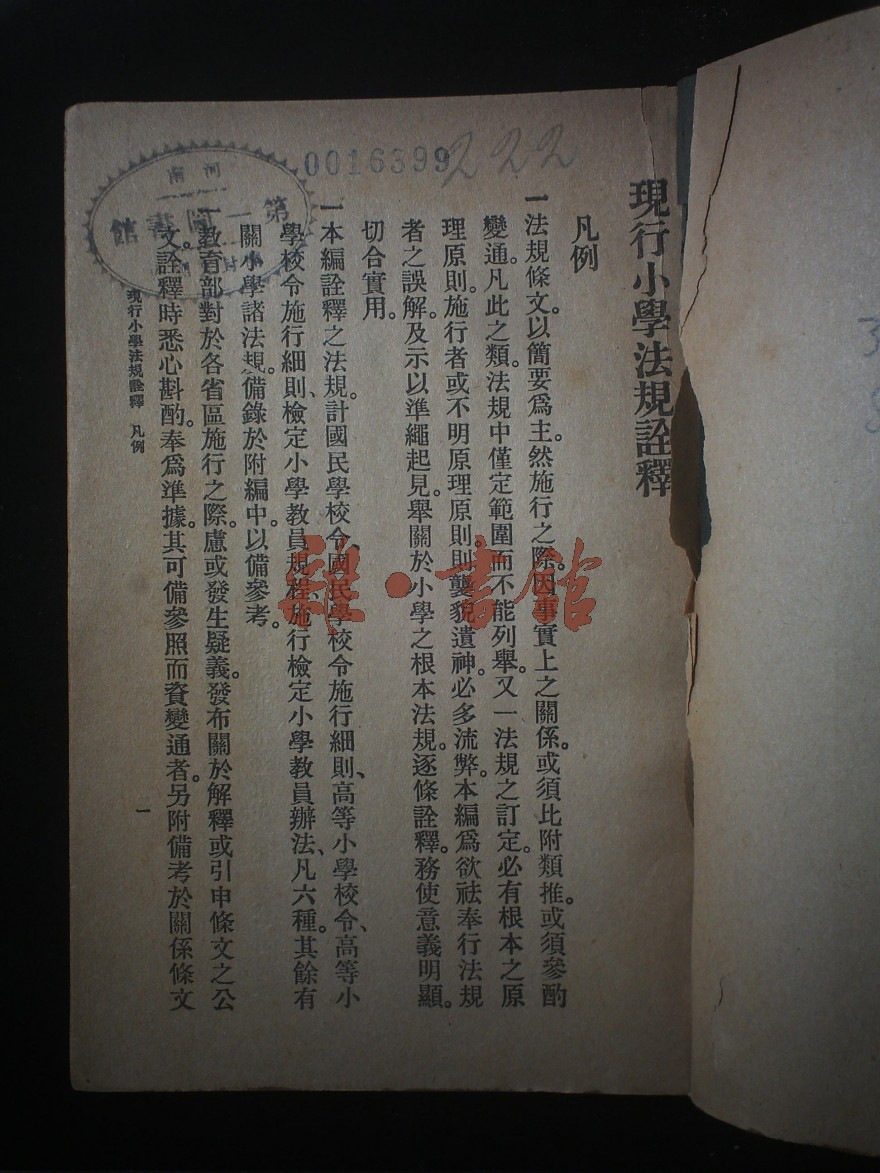 現行小學法規詮釋
凡例
一法規條文。以簡要爲主。然施行之際。因事實上之關係。或須比附類推。或須參酌
變通。凡此之類。法規中僅定範圍而不能列舉。又一法規之訂定。必有根本之原
理原則。施行者或不明原理原則。則襲貌遺神。必多流弊。本編爲欲祛奉行法規
者之誤解。及示以準繩起見。舉關於小學之根本法規。逐條詮釋。務使意義明顯。
切合實用。
一本編詮釋之法規。計國民學校令、國民學校令施行細則、高等小學校令、高等小
學校令施行細則、檢定小學教員規程、施行檢定小學教員辦法、凡六種。其餘有
關小學諸法規。備錄於附編中。以備參考。
一教育部對於各省區施行之際。慮或發生疑義。發布關於解釋或引申條文之公
文。詮釋時悉心斟酌。奉爲準據。其可備參照而資變通者。另附備考於關係條文
現行小學法規詮釋 凡例
一
0016399
222
河南
第一圖書館
雜·書館